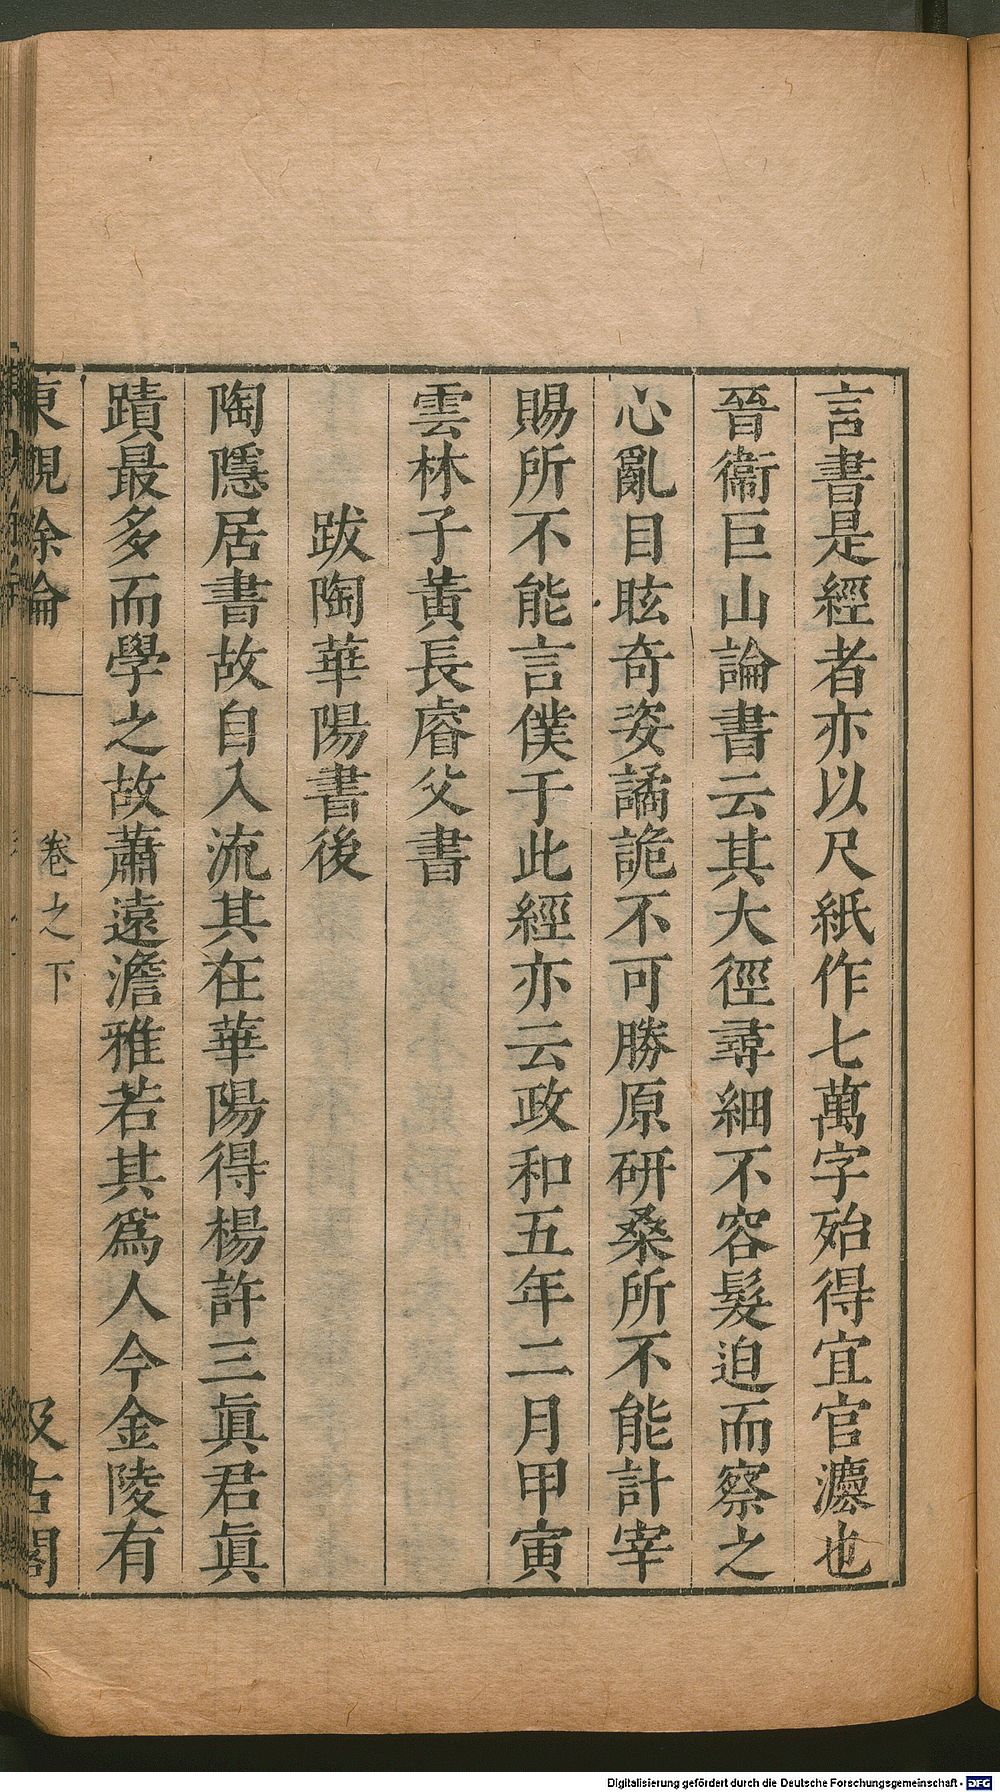 言書是經者亦以尺紙作七萬字殆得宜官灋也
晉衞巨山論書云其大徑尋細不容髮迫而察之
心亂目眩奇姿譎詭不可勝原研桑所不能計宰
賜所不能言僕于此經亦云政和五年二月甲寅
雲林子黃長睿父書
跋陶華陽書後
陶隱居書故自入流其在華陽得楊許三眞君眞
蹟最多而學之故蕭遠澹雅若其爲人今金陵有
東觀餘論
卷之下
汲古閣
Digitalisierung gefördert durch die Deutsche Forschungsgemeinschaft - DFG